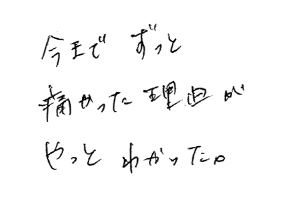 今まで ずっと
痛かった理由が
やっと わかった。